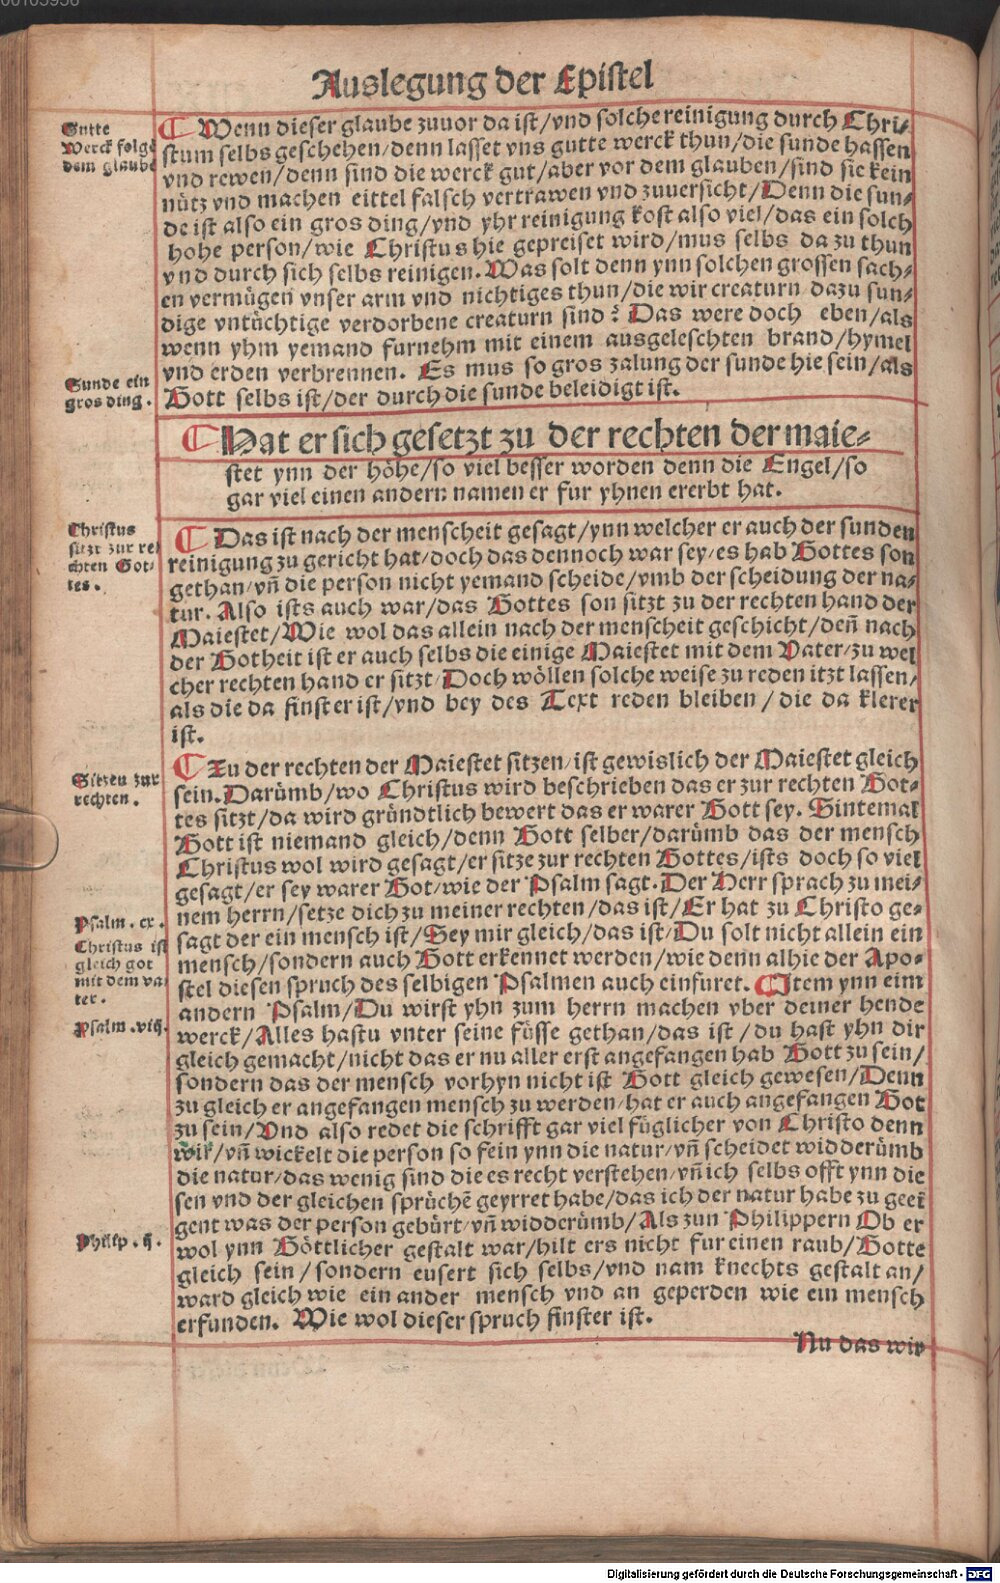 00105956
Auslegung der Epistel
Gutte
Werck folge
dem glaube
Wenn dieser glaube zuuor da ist/vnd solche reinigung durch Chri-
stum selbs geschehen/denn lasset vns gutte werck thun/die sunde hassen
vnd rewen/denn sind die werck gut/aber vor dem glauben/sind sie kein
nütz vnd machen eittel falsch vertrawen vnd zuuersicht/Denn die sun-
de ist also ein gros ding/vnd yhr reinigung kost also viel/das ein solch
hohe person/wie Christus hie gepreiset wird/mus selbs da zu thun
vnd durch sich selbs reinigen. Was solt denn ynn solchen grossen sach-
en vermügen vnser arm vnd nichtiges thun/die wir creaturn dazu sun-
dige vntüchtige verdorbene creaturn sind? Das were doch eben/als
wenn yhm yemand furnehm mit einem ausgeleschten brand/hymel
vnd erden verbrennen. Es mus so gros zalung der sunde hie sein/als
Gott selbs ist/der durch die sunde beleidigt ist.
Sunde ein
gros ding.
Hat er sich gesetzt zu der rechten der maie-
stet ynn der höhe/so viel besser worden denn die Engel/so
gar viel einen andern namen er fur yhnen ererbt hat.
Christus
sitzt zur re
chten Got-
tes.
Das ist nach der menscheit gesagt/ynn welcher er auch der sunden
reinigung zu gericht hat/doch das dennoch war sey/es hab Gottes son
gethan/vñ die person nicht yemand scheide/vmb der scheidung der na-
tur. Also ists auch war/das Gottes son sitzt zu der rechten hand der
Maiestet/Wie wol das allein nach der menscheit geschicht/deñ nach
der Gotheit ist er auch selbs die einige Maiestet mit dem Vater/zu wel
cher rechten hand er sitzt/Doch wöllen solche weise zu reden itzt lassen/
als die da finster ist/vnd bey des Text reden bleiben/die da klerer
ist.
Sitzen zur
rechten.
Zu der rechten der Maiestet sitzen/ist gewislich der Maiestet gleich
sein. Darümb/wo Christus wird beschrieben das er zur rechten Got-
tes sitzt/da wird gründtlich bewert das er warer Gott sey. Sintemal
Gott ist niemand gleich/denn Gott selber/darümb das der mensch
Christus wol wird gesagt/er sitze zur rechten Gottes/ists doch so viel
gesagt/er sey warer Got/wie der Psalm sagt. Der Herr sprach zu mei-
nem herrn/setze dich zu meiner rechten/das ist/Er hat zu Christo ge-
sagt der ein mensch ist/Sey mir gleich/das ist/Du solt nicht allein ein
mensch/sondern auch Gott erkennet werden/wie denn alhie der Apo-
stel diesen spruch des selbigen Psalmen auch einfuret. Item ynn eim
andern Psalm/Du wirst yhn zum herrn machen vber deiner hende
werck/Alles hastu vnter seine füsse gethan/das ist/du hast yhn dir
gleich gemacht/nicht das er nu aller erst angefangen hab Gott zu sein/
sondern das der mensch vorhyn nicht ist Gott gleich gewesen/Denn
zu gleich er angefangen mensch zu werden/hat er auch angefangen Got
zu sein/Vnd also redet die schrifft gar viel füglicher von Christo denn
wir/vñ wickelt die person so fein ynn die natur/vñ scheidet widderümb
die natur/das wenig sind die es recht verstehen/vñ ich selbs offt ynn die
sen vnd der gleichen sprüchẽ geyrret habe/das ich der natur habe zu geei
gent was der person gebürt/vñ widderümb/Als zun Philippern Ob er
wol ynn Göttlicher gestalt war/hilt ers nicht fur einen raub/Gotte
gleich sein/sondern eusert sich selbs/vnd nam knechts gestalt an/
ward gleich wie ein ander mensch vnd an geperden wie ein mensch
erfunden. Wie wol dieser spruch finster ist.
Psalm. cx.
Christus ist
gleich got
mit dem va
ter.
Psalm. viij.
Philip. ij.
Nu das wir
Digitalisierung gefördert durch die Deutsche Forschungsgemeinschaft - DFG